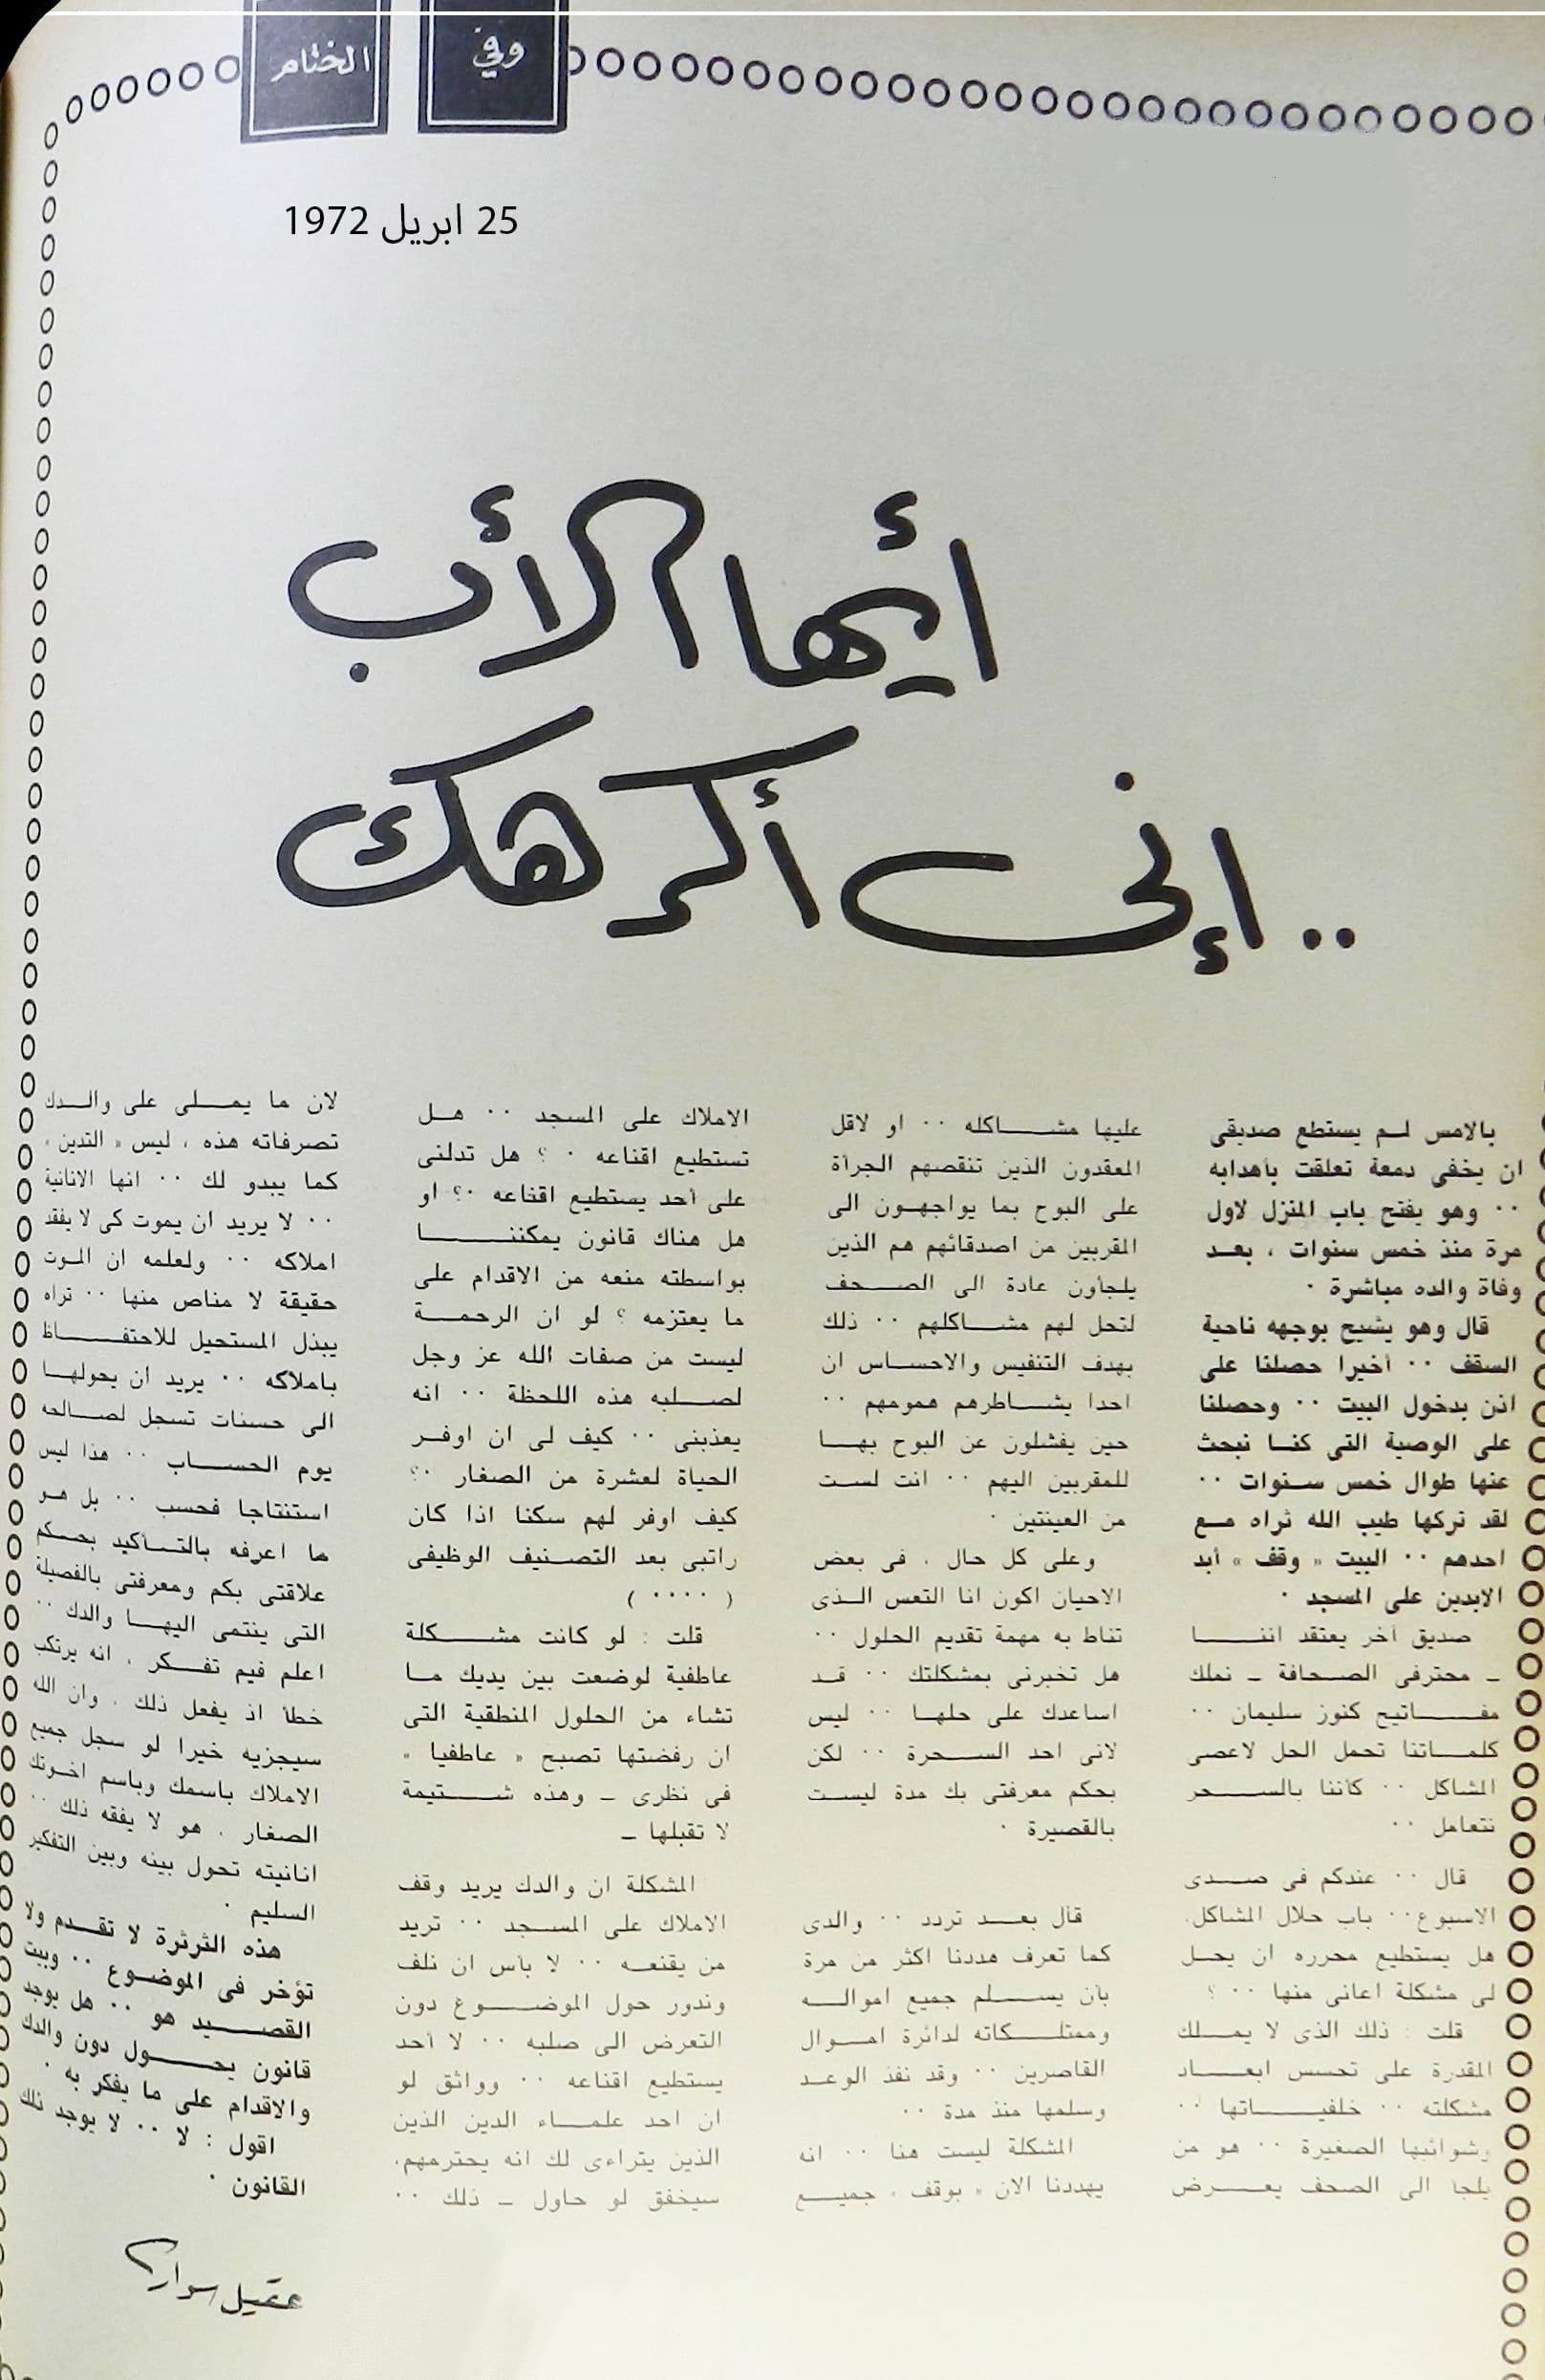 وفي الختام
25 ابريل 1972
أيها الأب
.. إنى أكرهك
بالامس لم يستطع صديقى
ان يخفى دمعة تعلقت بأهدابه
٠٠ وهو يفتح باب المنزل لاول
مرة منذ خمس سنوات ، بعد
وفاة والده مباشرة ٠
قال وهو يشيح بوجهه ناحية
السقف ٠٠ أخيرا حصلنا على
اذن بدخول البيت ٠٠ وحصلنا
على الوصية التى كنا نبحث
عنها طوال خمس سنوات ٠٠
لقد تركها طيب الله ثراه مع
احدهم ٠٠ البيت « وقف » أبد
الابدين على المسجد ٠
صديق آخر يعتقد اننا
ـ محترفى الصحافة ـ نملك
مفاتيح كنوز سليمان ٠٠
كلماتنا تحمل الحل لاعصى
المشاكل ٠٠ كأننا بالسحر
نتعامل ٠٠
قال ٠٠ عندكم فى صدى
الاسبوع ٠٠ باب حلال المشاكل.
هل يستطيع محرره ان يحل
لى مشكلة اعانى منها ٠٠ ؟
قلت : ذلك الذى لا يملك
المقدرة على تحسس ابعاد
مشكلته ٠٠ خلفياتها ٠٠
وشوائبها الصغيرة ٠٠ هو من
يلجا الى الصحف يعرض
عليها مشاكله ٠٠ او لاقل
المعقدون الذين تنقصهم الجرأة
على البوح بما يواجهون الى
المقربين من اصدقائهم هم الذين
يلجأون عادة الى الصحف
لتحل لهم مشاكلهم ٠٠ ذلك
بهدف التنفيس والاحساس ان
احدا يشاطرهم همومهم ٠٠
حين يفشلون عن البوح بها
للمقربين اليهم ٠٠ انت لست
من العينتين ٠
وعلى كل حال . فى بعض
الاحيان اكون انا التعس الذى
تناط به مهمة تقديم الحلول ٠٠
هل تخبرنى بمشكلتك ٠٠ قد
اساعدك على حلها ٠٠ ليس
لانى احد السحرة ٠٠ لكن
بحكم معرفتى بك مدة ليست
بالقصيرة ٠
قال بعد تردد ٠٠ والدى
كما تعرف هددنا اكثر من مرة
بأن يسلم جميع امواله
وممتلكاته لدائرة اموال
القاصرين ٠٠ وقد نفذ الوعد
وسلمها منذ مدة ٠٠
المشكلة ليست هنا ٠٠ انه
يهددنا الان « بوقف » جميع
الاملاك على المسجد ٠٠ هل
تستطيع اقناعه ٠ ؟ هل تدلنى
على أحد يستطيع اقناعه ٠؟ او
هل هناك قانون يمكننا
بواسطته منعه من الاقدام على
ما يعتزمه ؟ لو ان الرحمة
ليست من صفات الله عز وجل
لصلبه هذه اللحظة ٠٠ انه
يعذبنى ٠٠ كيف لى ان اوفر
الحياة لعشرة من الصغار ٠؟
كيف اوفر لهم سكنا اذا كان
راتبى بعد التصنيف الوظيفى
( ٠٠٠٠ )
قلت : لو كانت مشكلة
عاطفية لوضعت بين يديك ما
تشاء من الحلول المنطقية التى
ان رفضتها تصبح « عاطفيا »
فى نظرى ـ وهذه شتيمة
لا تقبلها ـ
المشكلة ان والدك يريد وقف
الاملاك على المسجد ٠٠ تريد
من يقنعه ٠٠ لا بأس ان نلف
وندور حول الموضوع دون
التعرض الى صلبه ٠٠ لا أحد
يستطيع اقناعه ٠٠ وواثق لو
ان احد علماء الدين الذين
الذين يتراءى لك انه يحترمهم.
سيخفق لو حاول ـ ذلك ٠٠
لان ما يملى على والدك
تصرفاته هذه ، ليس « التدين »
كما يبدو لك ٠٠ انها الانانية
٠٠ لا يريد ان يموت كى لا يفقد
املاكه ٠٠ ولعلمه ان الموت
حقيقة لا مناص منها ٠٠ تراه
يبذل المستحيل للاحتفاظ
باملاكه ٠٠ يريد ان يحولها
الى حسنات تسجل لصالحه
يوم الحساب ٠٠ هذا ليس
استنتاجا فحسب ٠٠ بل هو
ما اعرفه بالتأكيد بحكم
علاقتى بكم ومعرفتى بالفصيلة
التى ينتمى اليها والدك ٠٠
اعلم فيم تفكر . انه يرتكب
خطأ اذ يفعل ذلك . وان الله
سيجزيه خيرا لو سجل جميع
الاملاك باسمك وباسم اخوتك
الصغار . هو لا يفقه ذلك ٠٠
انانيته تحول بينه وبين التفكير
السليم ٠
هذه الثرثرة لا تقدم ولا
تؤخر فى الموضوع ٠٠ وبيت
القصيد هو ٠٠ هل يوجد
قانون يحول دون والدك
والاقدام على ما يفكر به ٠
اقول : لا ٠٠ لا يوجد ذلك
القانون ٠
عقيل سوار